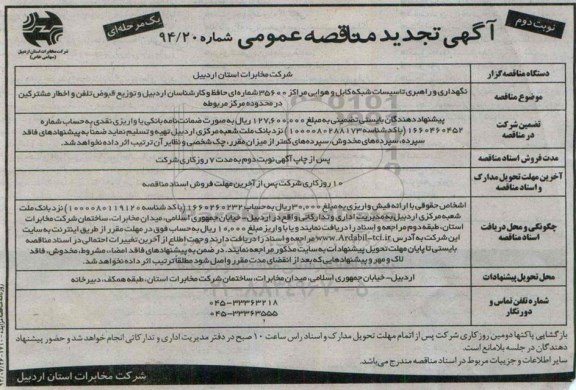 نوبت دوم
آگهی تجدید مناقصه عمومی شماره ۹۴/۲۰
یک مرحله‌ای
شرکت مخابرات استان اردبیل
(سهامی خاص)
دستگاه مناقصه گزار
شرکت مخابرات استان اردبیل
موضوع مناقصه
نگهداری و راهبری تاسیسات شبکه کابل و هوایی مراکز ۳۵۶۰۰ شماره‌ای حافظ و کارشناسان اردبیل و توزیع قبوض تلفن و اخطار مشترکین
در محدوده مرکز مربوطه
تضمین شرکت
در مناقصه
پیشنهاد دهندگان بایستی تضمینی به مبلغ ۱۲۷,۶۰۰,۰۰۰ ریال به صورت ضمانت نامه بانکی یا واریزی نقدی به حساب شماره
۱۶۶۰۴۶۰۴۵۲ (با کد شناسه ۱۰۰۰۰۸۰۲۸۸۱۷۳) نزد بانک ملت شعبه مرکزی اردبیل تهیه و تسلیم نماید ضمناً به پیشنهادهای فاقد
سپرده، سپرده‌های مخدوش، سپرده‌های کمتر از میزان مقرر، چک شخصی و نظایر آن ترتیب اثر داده نخواهد شد.
مدت فروش اسناد مناقصه
پس از چاپ آگهی نوبت دوم به مدت ۷ روز کاری شرکت
آخرین مهلت تحویل مدارک
و اسناد مناقصه
۱۰ روز کاری شرکت پس از آخرین مهلت فروش اسناد مناقصه
چگونگی و محل دریافت
اسناد مناقصه
اشخاص حقوقی با ارائه فیش واریزی به مبلغ ۳۰,۰۰۰ ریال به حساب ۱۶۶۰۲۶۰۲۳۲ (با کد شناسه ۱۰۰۰۰۸۰۱۱۹۱۲۰) نزد بانک ملت
شعبه مرکزی اردبیل به مدیریت اداری و تدارکاتی واقع در اردبیل - خیابان جمهوری اسلامی، میدان مخابرات، ساختمان شرکت مخابرات
استان، طبقه دوم مراجعه و اسناد را دریافت نمایند و یا با واریز مبلغ ۱۰,۰۰۰ ریال به حساب فوق در مهلت مقرر از طریق اینترنت به سایت
این شرکت به آدرس www.Ardabil-tci.ir مراجعه و اسناد را دریافت دارند و جهت اطلاع از آخرین تغییرات احتمالی در اسناد مناقصه
بایستی تا پایان مهلت تحویل پیشنهادات به سایت مذکور مراجعه نمایند. در ضمن به پیشنهادهای فاقد امضاء، مشروط، مخدوش، فاقد
لاک و مهر و پیشنهادهایی که بعد از انقضای مدت مقرر واصل شود مطلقاً ترتیب اثر داده نخواهد شد.
محل تحویل پیشنهادات
اردبیل - خیابان جمهوری اسلامی، میدان مخابرات، ساختمان شرکت مخابرات استان، طبقه همکف، دبیرخانه
شماره تلفن تماس و
دورنگار
۰۴۵-۳۳۳۶۳۲۱۸
۰۴۵-۳۳۳۶۳۵۵۵
بازگشایی پاکتها دومین روز کاری شرکت پس از اتمام مهلت تحویل مدارک و اسناد راس ساعت ۱۰ صبح در دفتر مدیریت اداری و تدارکاتی انجام خواهد شد و حضور پیشنهاد
دهندگان در جلسه بلامانع است.
سایر اطلاعات و جزییات مربوط در اسناد مناقصه مندرج می‌باشد.
شرکت مخابرات استان اردبیل